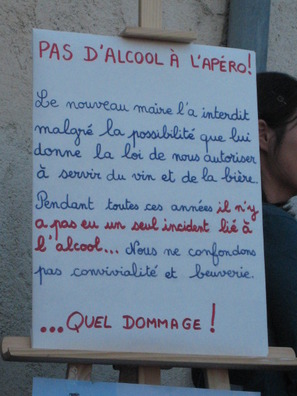 PAS D'ALCOOL À L'APÉRO!
Le nouveau maire l'a interdit
malgré la possibilité que lui
donne la loi de nous autoriser
à servir du vin et de la bière.
Pendant toutes ces années il n'y
a pas eu un seul incident lié à
l'alcool... Nous ne confondons
pas convivialité et beuverie.
...QUEL DOMMAGE !